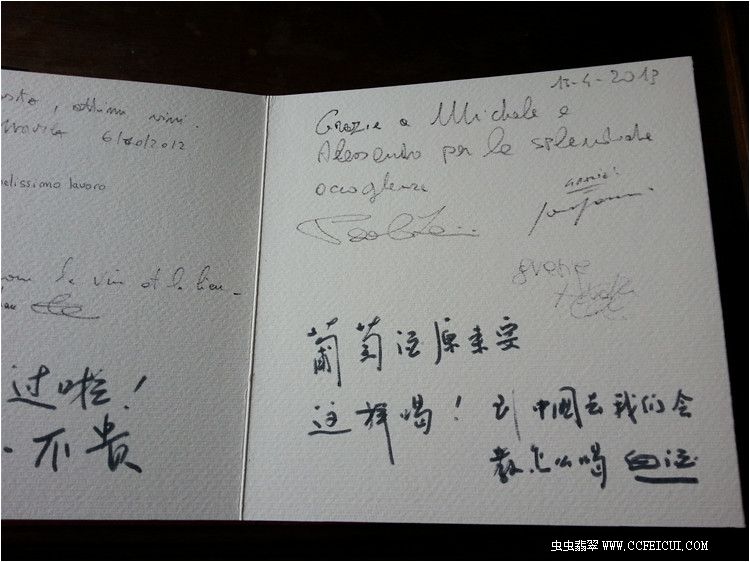 ottimi vini.
6/10/2012
elissimo lavoro
le vin et le lieu
过啦！
不贵
13-4-2013
Grazie a Michele e
Alessandro per la splendida
accoglienza
GRAZIE!
grazie
葡萄酒原来要
这样喝！到中国去我们会
教怎么喝白酒
虫虫翡翠 WWW.CCFEICUI.COM